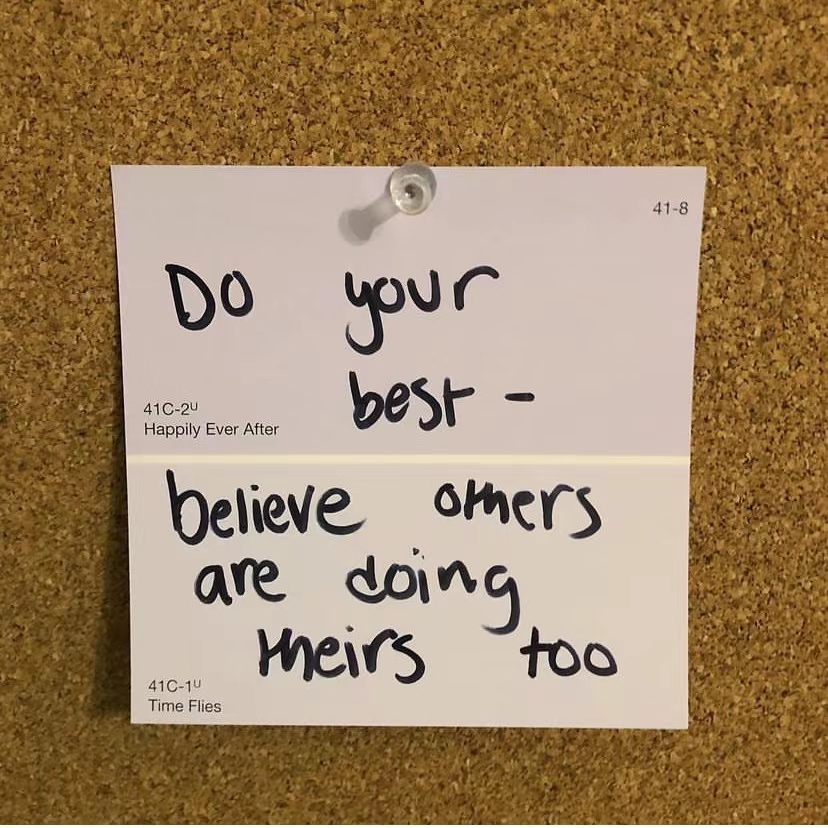 41-8
Do your
best -
41C-2U
Happily Ever After
believe others
are doing
theirs too
41C-1U
Time Flies